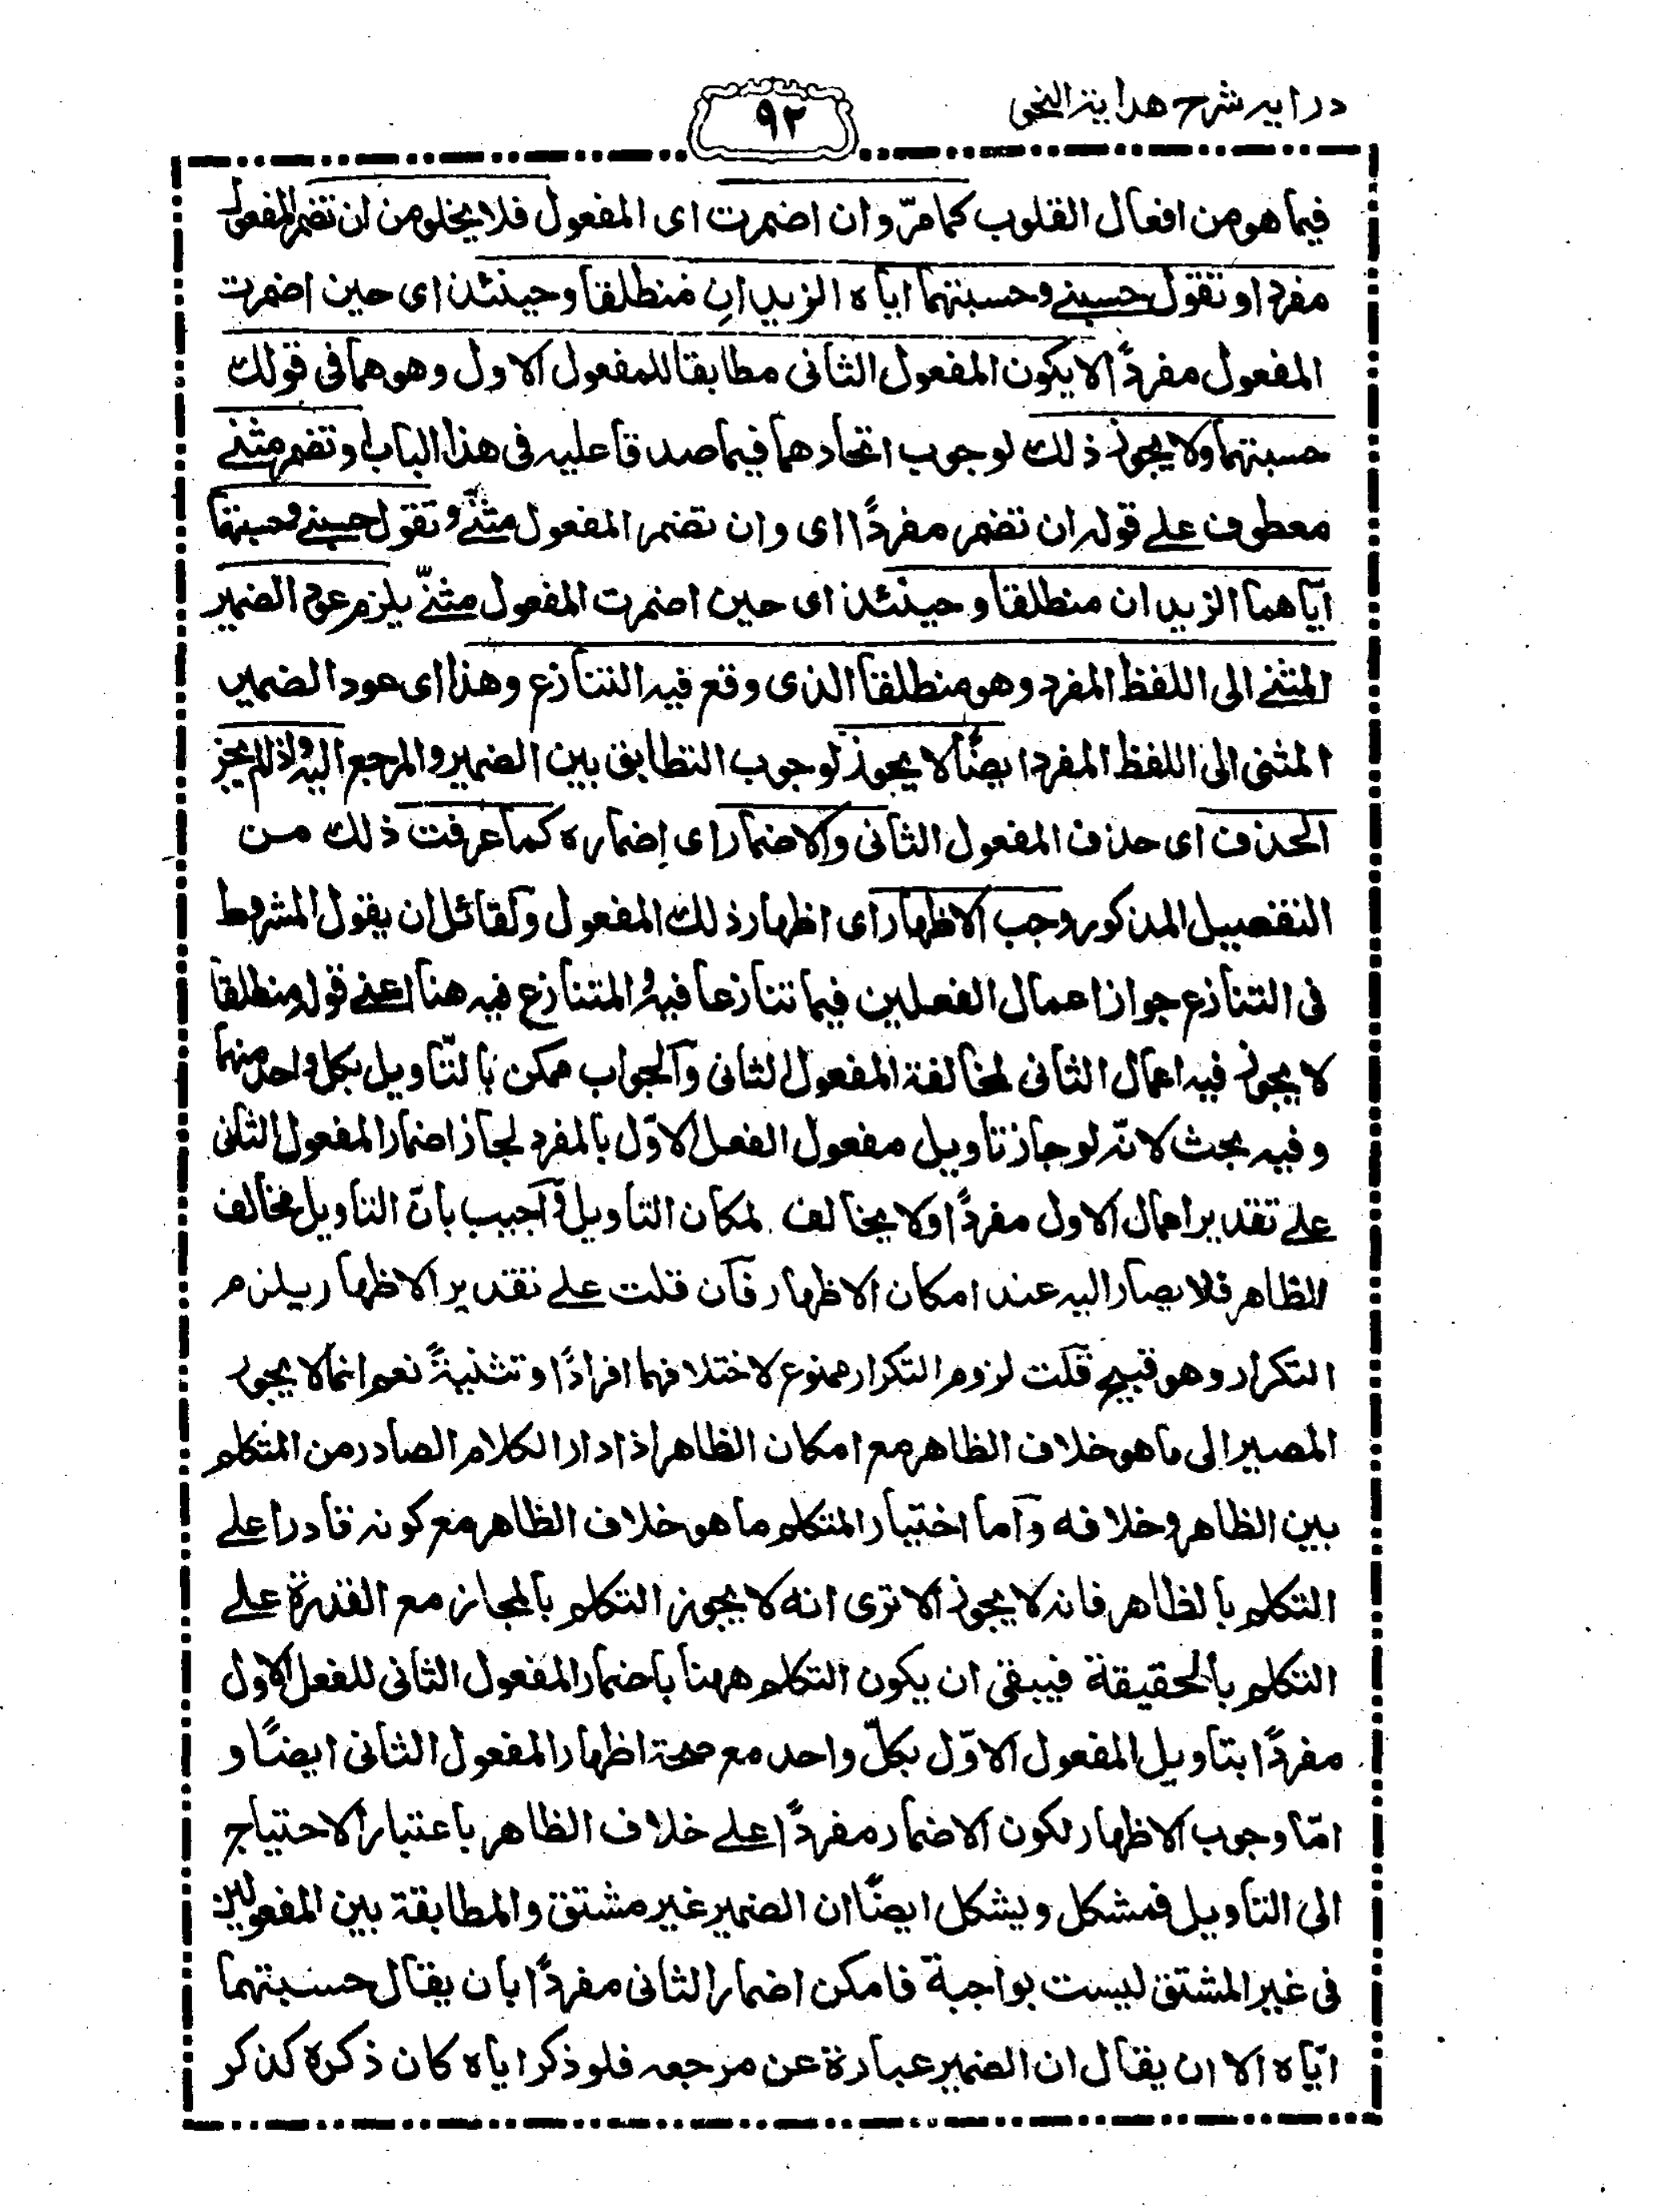 درايه شرح هداية النحو
٩٢
فيما هو من افعال القلوب كما مرّ وان اضمرت اى المفعول فلا يخلو من ان تضمر المفعول
مفردا وتقول حسبنى وحسبتهما اياه الزيدانِ منطلقا وحينئذ اى حين اضمرت
المفعول مفردًا لا يكون المفعول الثانى مطابقا للمفعول الاول وهو هما فى قولك
حسبتهما ولا يجوز ذلك لوجوب اتحادهما فيما صدقا عليه فى هذا الباب او تضمر مثنى
معطوف على قوله ان تضمر مفردًا اى وان تضمر المفعول مثنّى وتقول حسبنى وحسبتهما
اياهما الزيدان منطلقا وحينئذ اى حين اضمرت المفعول مثنّى يلزم عود الضمير
المثنى الى اللفظ المفرد وهو منطلقا الذى وقع فيه التنازع وهذا اى عود الضمير
المثنى الى اللفظ المفرد ايضًا لا يجوز لوجوب التطابق بين الضمير والمرجع اليه واذا لم يجز
الحذف اى حذف المفعول الثانى والاضمار اى إضماره كما عرفت ذلك من
التفصيل المذكور وجب الاظهار اى اظهار ذلك المفعول ولقائل ان يقول المشروط
فى التنازع جواز اعمال الفعلين فيما تنازعا فيه والمتنازع فيه هنا اعنى قوله منطلقا
لا يجوز فيه اعمال الثانى لمخالفة المفعول الثانى والجواب ممكن بالتّاويل بكل واحد منهما
وفيه بحث لانّه لو جاز تاويل مفعول الفعل الاوّل بالمفرد لجاز اضمار المفعول الثانى
على تقدير اعمال الاول مفردًا ولا يخالف لمكان التاويل وآجيب بانّ التاويل مخالف
للظاهر فلا يصار اليه عند امكان الاظهار فآن قلت على تقدير الاظهار يلزم
التكرار وهو قبيح قلت لزوم التكرار ممنوع لاختلافهما افرادًا وتثنيةً نعم انما لا يجوز
المصير الى ما هو خلاف الظاهر مع امكان الظاهر اذا دار الكلام الصادر من المتكلم
بين الظاهر وخلافه وآما اختيار المتكلم ما هو خلاف الظاهر مع كونه قادرا على
التكلم بالظاهر فانه لا يجوز الا ترى انه لا يجوز التكلم بالمجاز مع القدرة على
التكلم بالحقيقة فيبقى ان يكون التكلم ههنا باضمار المفعول الثانى للفعل الاول
مفردًا بتاويل المفعول الاوّل بكلّ واحد مع صحة اظهار المفعول الثانى ايضًا و
امّا وجوب الاظهار لكون الاضمار مفردًا على خلاف الظاهر باعتبار الاحتياج
الى التاويل فمشكل ويشكل ايضًا ان الضمير غير مشتق والمطابقة بين المفعولين
فى غير المشتق ليست بواجبة فامكن اضمار الثانى مفردًا بان يقال حسبتهما
ايّاه الا ان يقال ان الضمير عبارة عن مرجعه فلو ذكر اياه كان ذكره كذكر